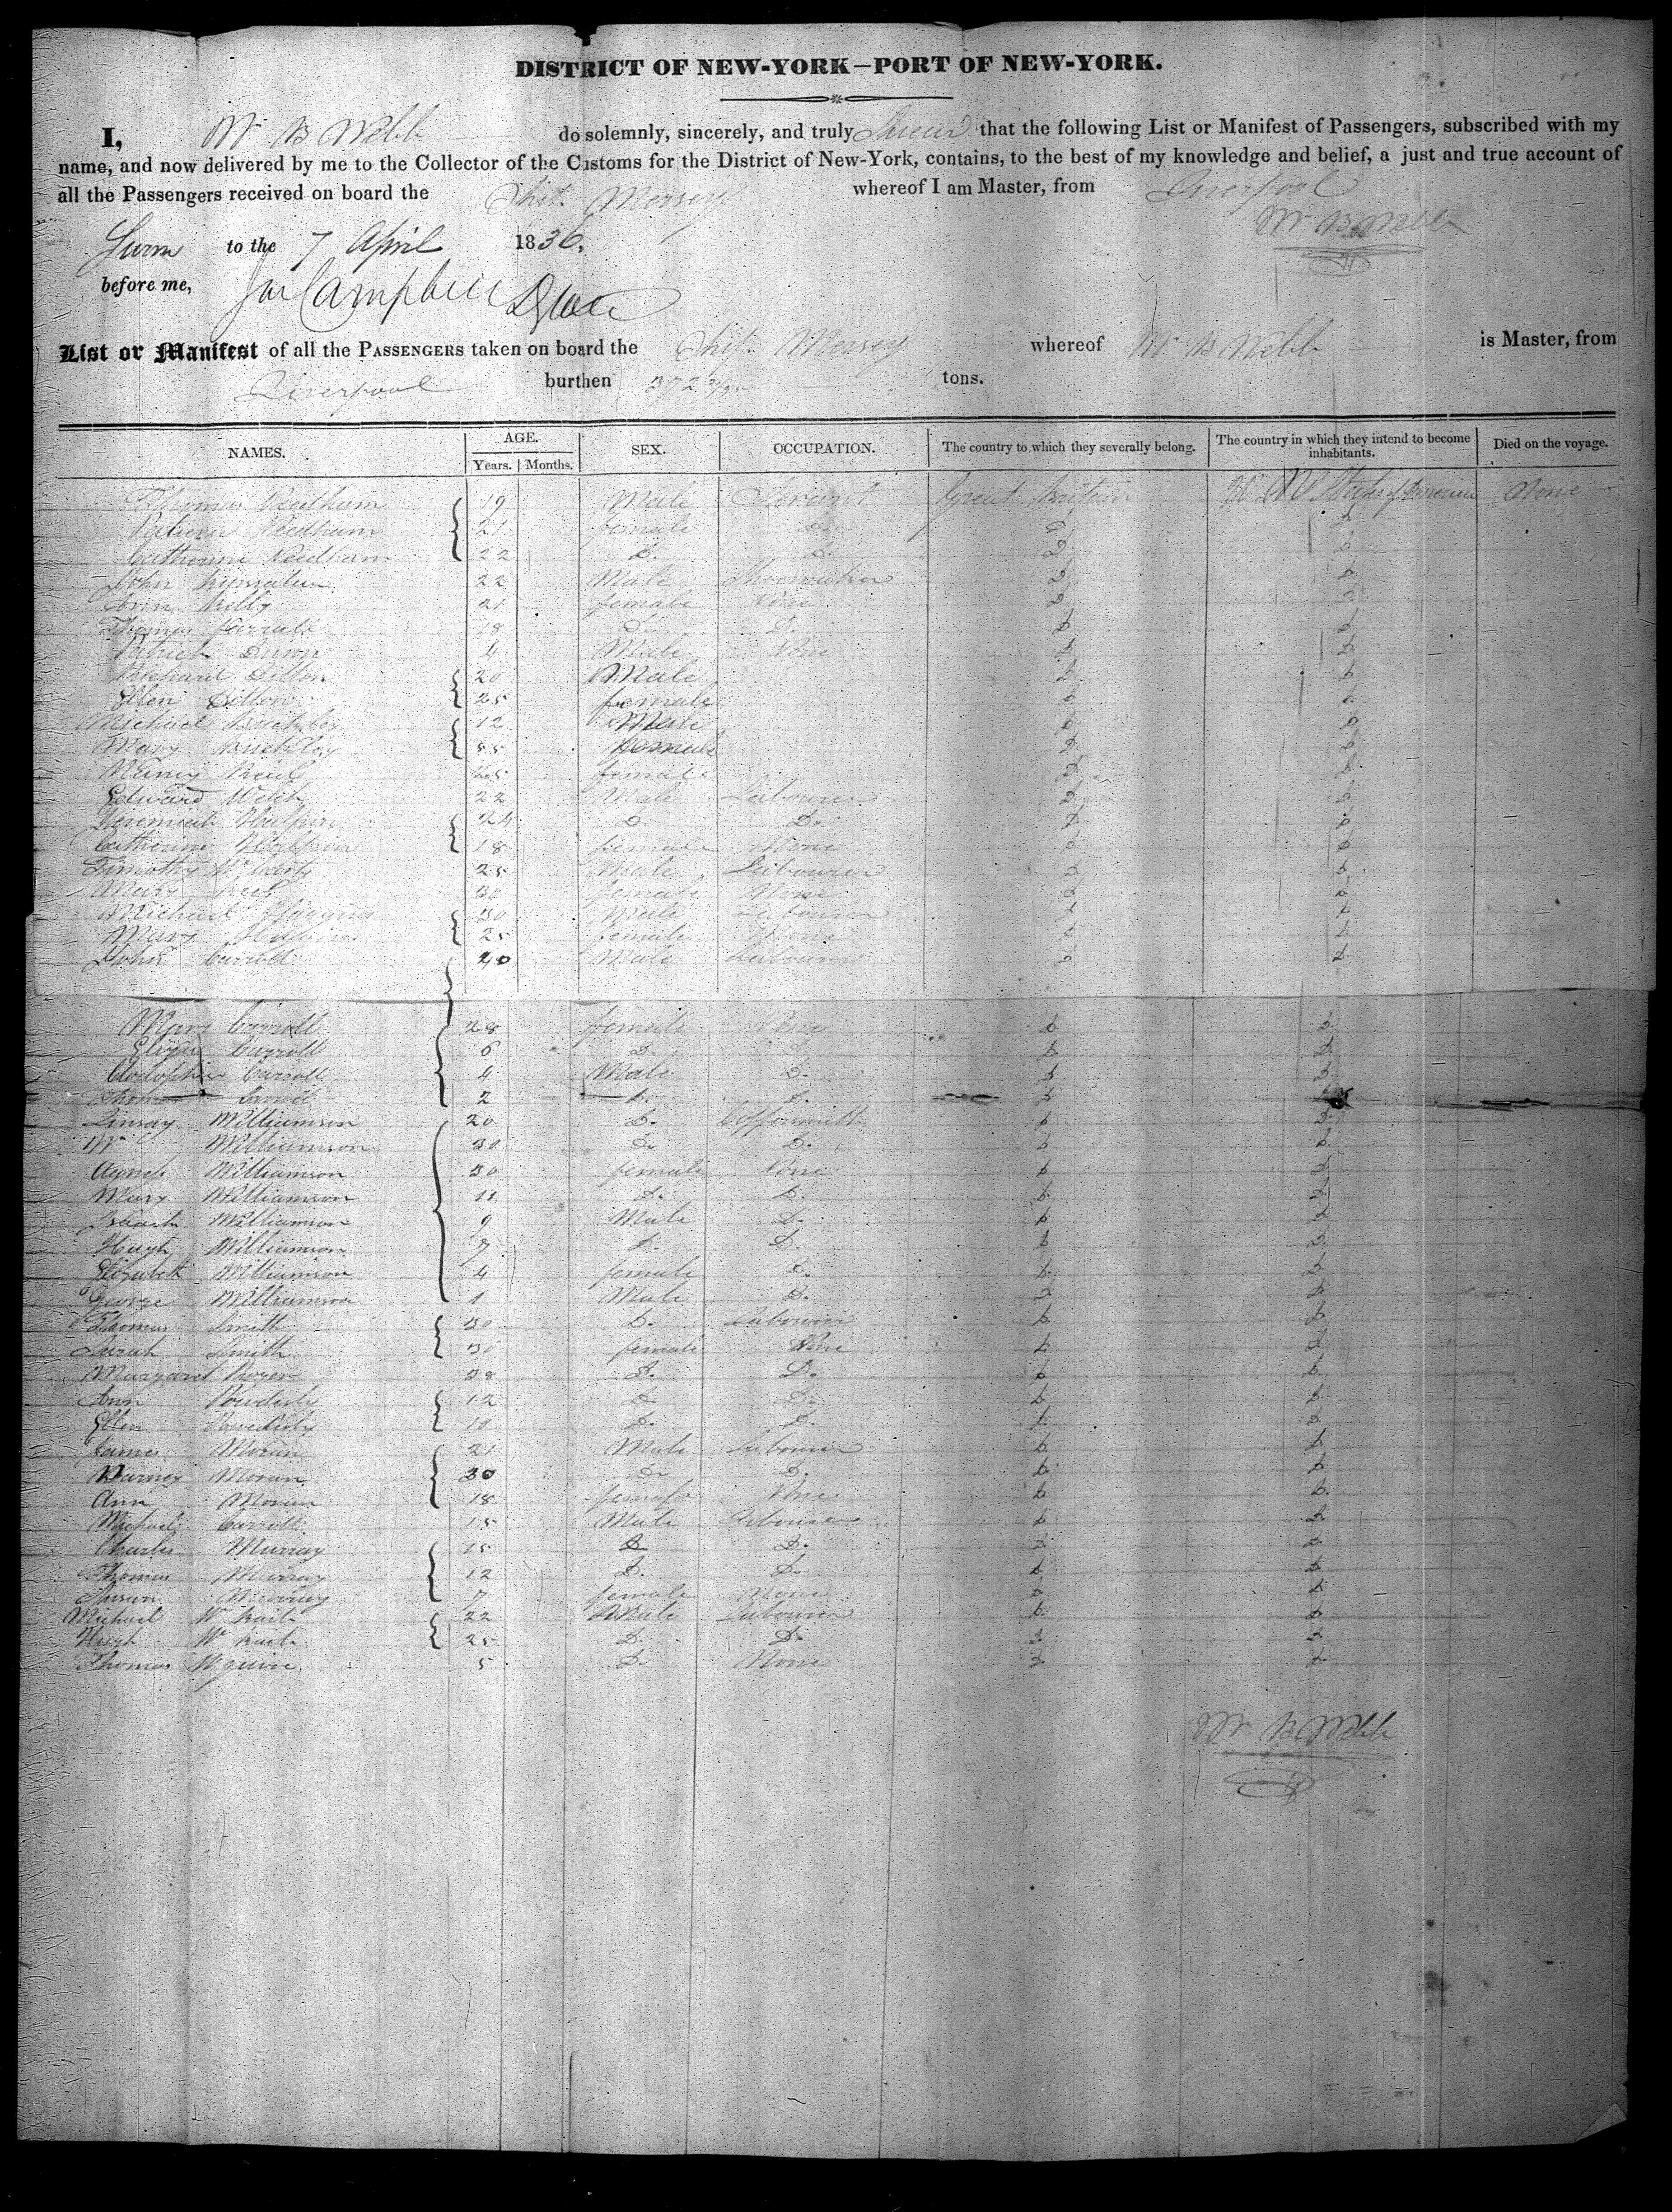 DISTRICT OF NEW-YORK—PORT OF NEW-YORK.
I, Wm B Webb do solemnly, sincerely, and truly Swear that the following List or Manifest of Passengers, subscribed with my
name, and now delivered by me to the Collector of the Customs for the District of New-York, contains, to the best of my knowledge and belief, a just and true account of
all the Passengers received on board the Ship Mersey whereof I am Master, from Liverpool
Wm B Webb
Sworn to the 7 April 1836,
before me, Campbell
List or Manifest of all the PASSENGERS taken on board the Ship Mersey whereof Wm B Webb is Master, from
Liverpool burthen 372 tons.
NAMES. AGE. SEX. OCCUPATION. The country to which they severally belong. The country in which they intend to become inhabitants. Died on the voyage.
Years. Months.
Thomas Needham 19 Male Servant Great Britain States of America None
Needham 21 female D. D. D.
Catherine Needham 22 D. D. D. D.
John 22 Male Shoemaker D. D.
Ann Kelly 21 female None D. D.
Thomas 18 D. D. D. D.
Patrick Dunn 4 Male None D. D.
Richard Dillon 20 Male D. D.
Ellen Dillon 25 female D. D.
Michael Buckley 12 Male D. D.
Mary Buckley 55 female D. D.
Nancy 25 female D. D.
Edward Welch 22 Male Labourer D. D.
Jeremiah Halpin 24 D. D. D. D.
Catherine Halpin 18 female None D. D.
Timothy 25 Male Labourer D. D.
Mary 30 female None D. D.
Michael Higgins 30 Male Labourer D. D.
Mary 25 female None D. D.
John Carroll 40 Male Labourer D. D.
Mary Carroll 28 female None D. D.
Eliza Carroll 6 D. D. D. D.
Carroll 4 Male D. D. D.
Thomas Carroll 2 D. D. D. D.
Linsay Williamson 20 D. Coppersmith D. D.
Wm Williamson 30 D. D. D. D.
Agnes Williamson 30 female None D. D.
Mary Williamson 11 D. D. D. D.
Williamson 9 Male D. D. D.
Hugh Williamson 7 D. D. D. D.
Elizabeth Williamson 4 female D. D. D.
George Williamson 1 Male D. D. D.
Thomas Smith 30 D. Labourer D. D.
Sarah Smith 30 female None D. D.
Margaret 28 D. D. D. D.
Ann Powderly 12 D. D. D. D.
Ellen Powderly 10 D. D. D. D.
James Moran 21 Male Labourer D. D.
Barney Moran 30 D. D. D. D.
Ann Moran 18 female None D. D.
Michael Carroll 15 Male Labourer D. D.
Charles Murray 15 D. D. D. D.
Thomas Murray 12 D. D. D. D.
Murray 7 female None D. D.
Michael 22 Male Labourer D. D.
Hugh 25 D. D. D. D.
Thomas 5 D. None D. D.
Wm B Webb